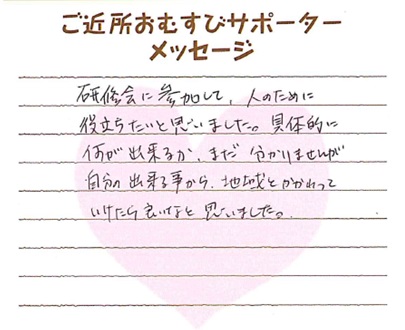 ご近所おむすびサポーター
メッセージ
研修会に参加して、人のために
役立ちたいと思いました。具体的に
何が出来るか、まだ分かりませんが
自分の出来る事から、地域とかかわって
いけたら良いなと思いました。